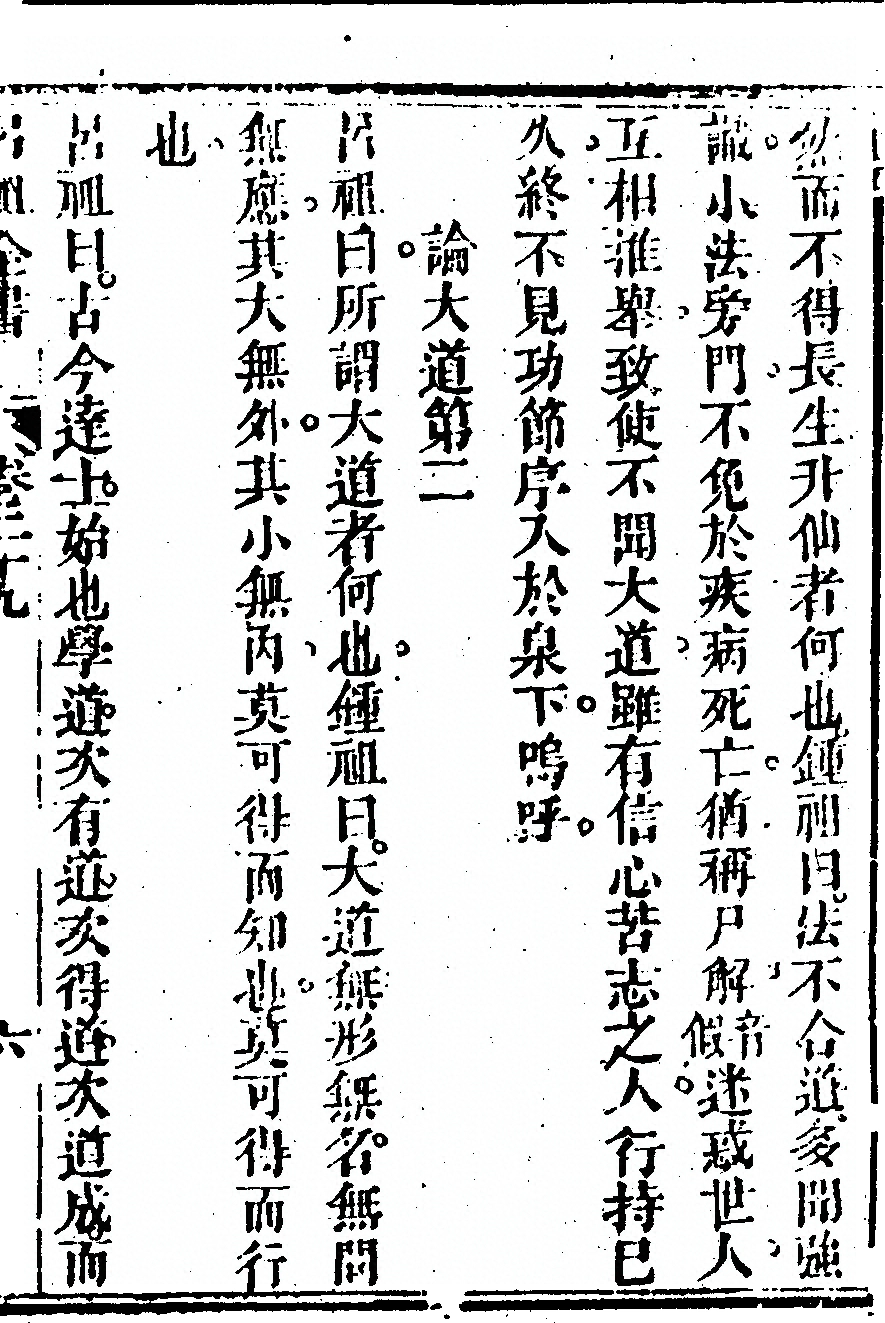 然而不得長生升仙者何也鍾祖曰法不合道多聞强
識小法旁門不免於疾病死亡猶稱尸解音假迷惑世人
互相推舉致使不聞大道雖有信心苦志之人行持已
久終不見功節序入於泉下嗚呼
論大道第二
呂祖曰所謂大道者何也鍾祖曰大道無形無名無問
無應其大無外其小無內莫可得而知也莫可得而行
也
呂祖曰古今達士始也學道次有道次得道次道成而
呂祖全書 卷三十九 六